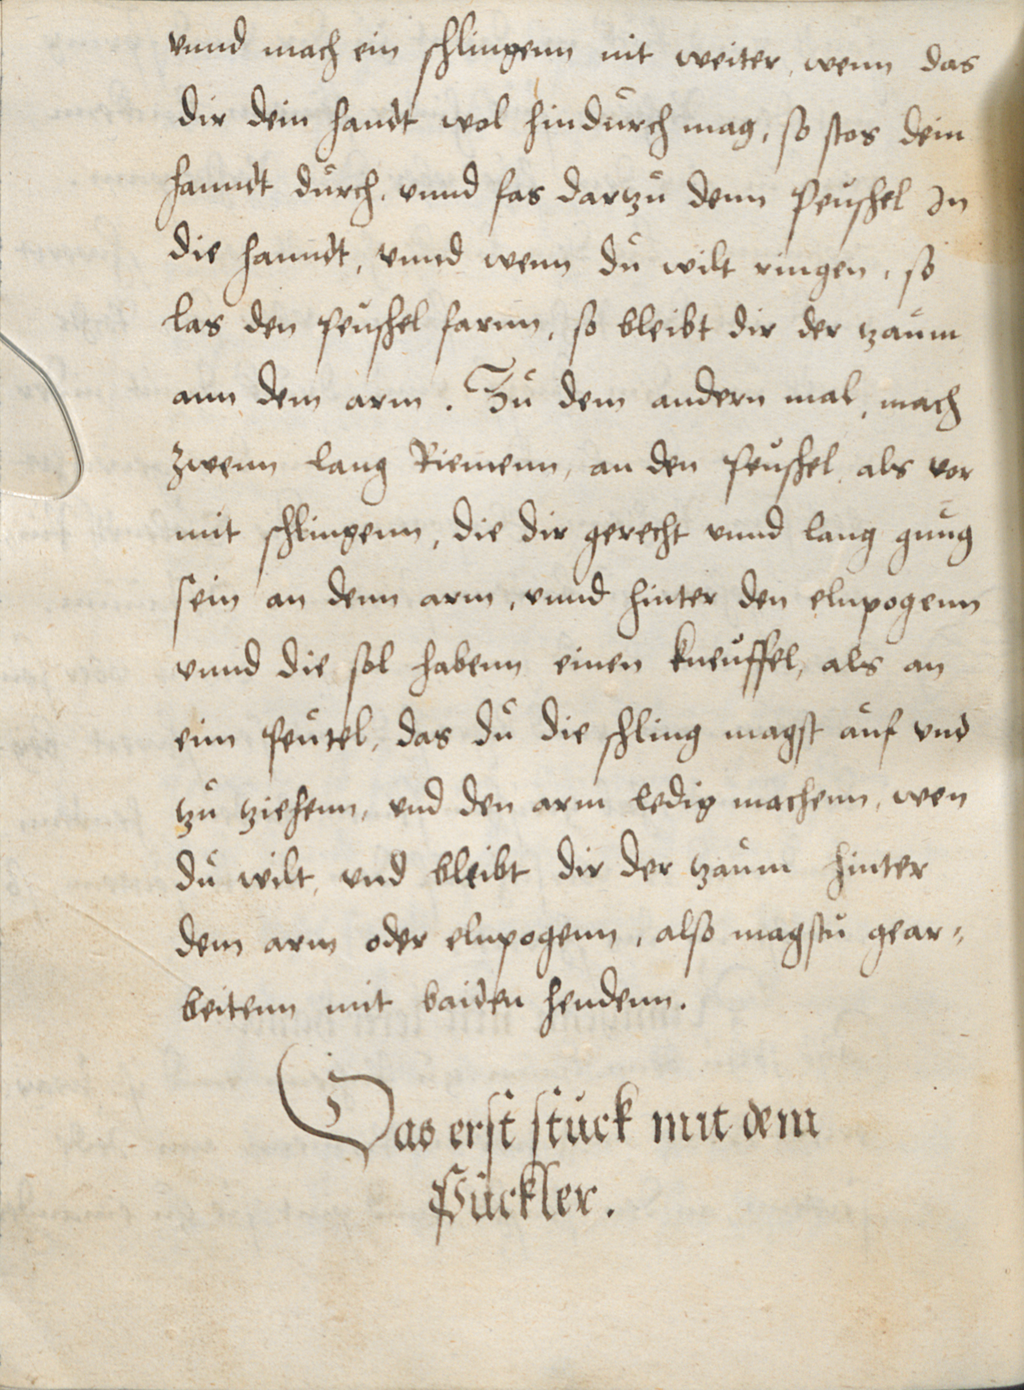 vnnd mach ein schlingenn nit weiter, wenn das
dir dein handt wol hindurch mag, so stos dein
hanndt durch, vnnd fas dartzu denn Peuschel In
die hanndt, vnnd wenn du wilt ringen, so
las den peuschel farnn, so bleibt dir der tzaum
ann dem arm. Zu dem andern mal, mach
zwenn lang Riemenn, an den peuschel, als vor
mit schlingenn, die dir gerecht vnnd lang gnug
sein an denn arm, vnnd hinter den elnpogenn
vnnd die sol habenn einen kneuffel, als an
eim peutel, das du die schling magst auf vnd
tzu tziehenn, vnd den arm ledig machenn, wen
du wilt, vnd bleibt dir der tzaum hinter
dem arm oder elnpogenn, also magstu gear-
beitenn mit baiden hendenn.
Das erst stuck mit dem
Puckler.